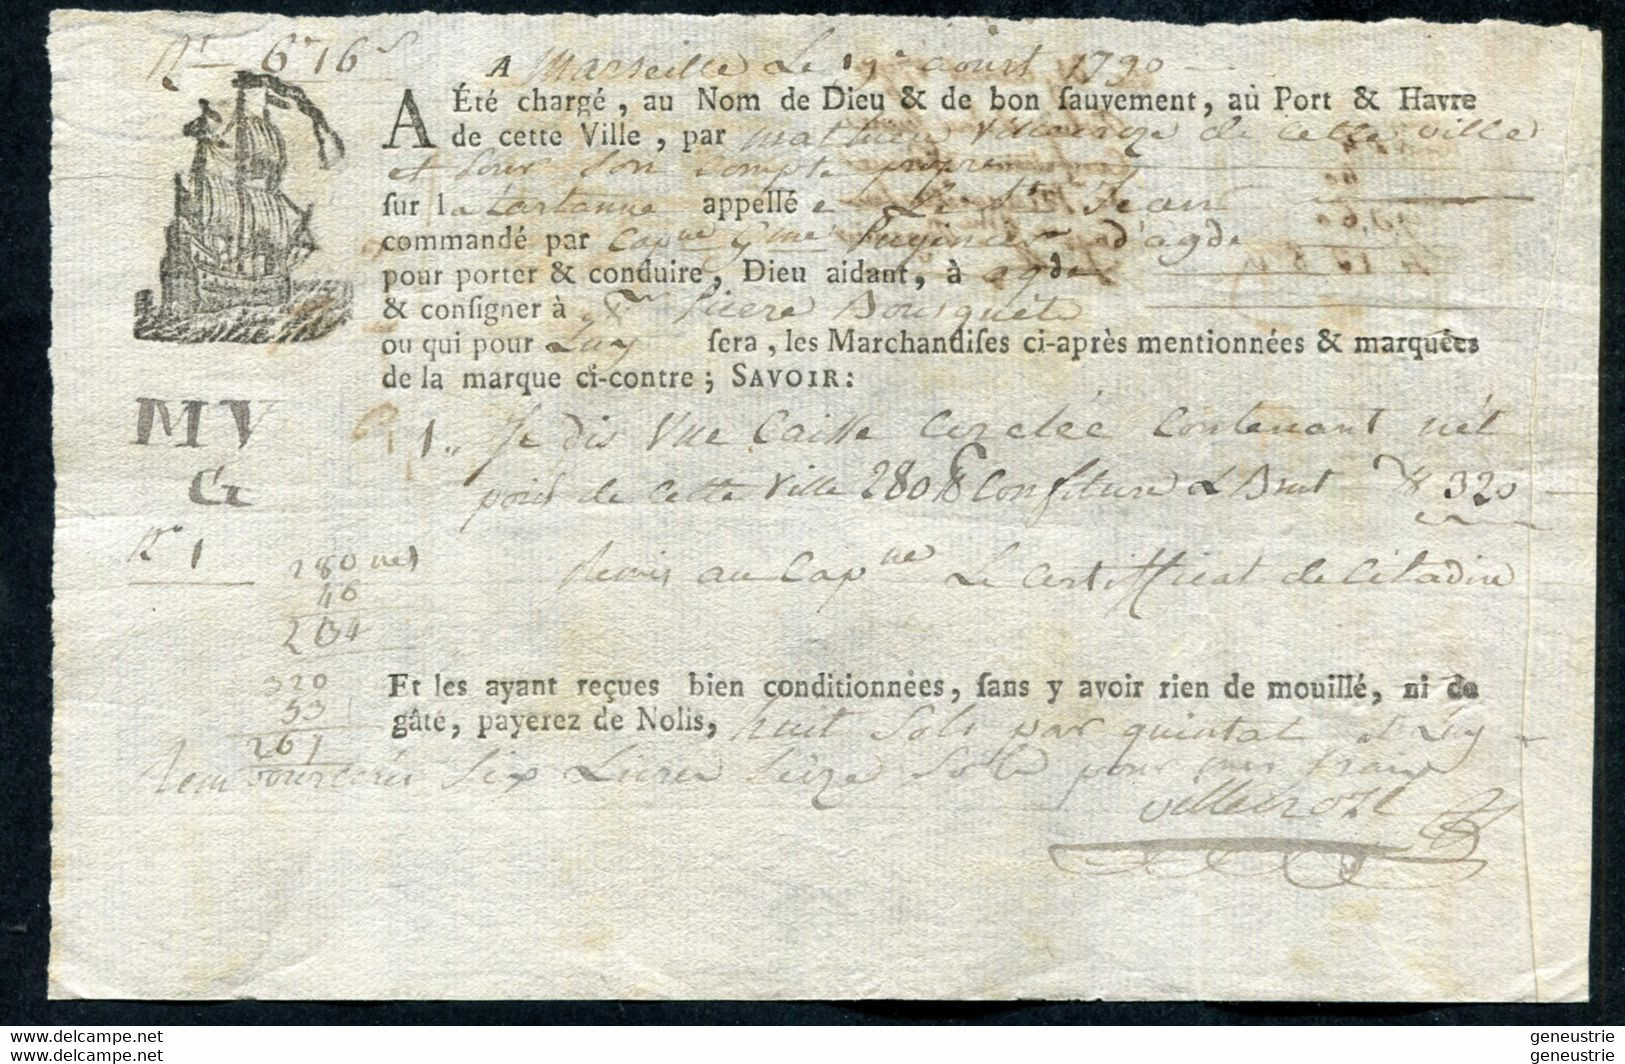 6 16 s
A Marseille Le 19e aoust 1790
A Été chargé, au Nom de Dieu & de bon sauvement, au Port & Havre
de cette Ville, par mathieu de cette ville
et pour son compte propre
sur la tartanne appellée Le St Jean
commandé par Capne d'agde
pour porter & conduire, Dieu aidant, à agde
& consigner à Sr Piere Bousquet
ou qui pour Luy sera, les Marchandises ci-après mentionnées & marquées
de la marque ci-contre; SAVOIR:
MV
G
No 1
1.. Je dis Une Caisse Cerclée Contenant nét
poid de cette ville 280 Confiture & Brut 320
280 net
46
234
Remis au Capne Le Certifficat de Citadin
320
53
267
Et les ayant reçues bien conditionnées, sans y avoir rien de mouillé, ni de
gâté, payerez de Nolis, huit Sols par quintal et Luy
Rembourcerés Six Livres Seize Sols pour mes fraix
Villecroze
geneustrie
geneustrie